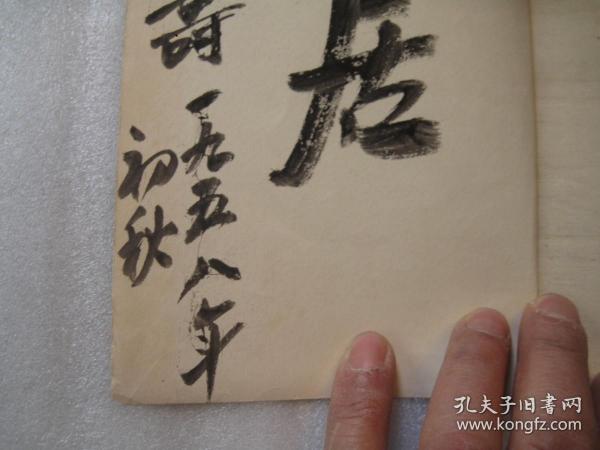 居
寿 一九五八年
初秋
孔夫子旧書网
www.kongfz.com